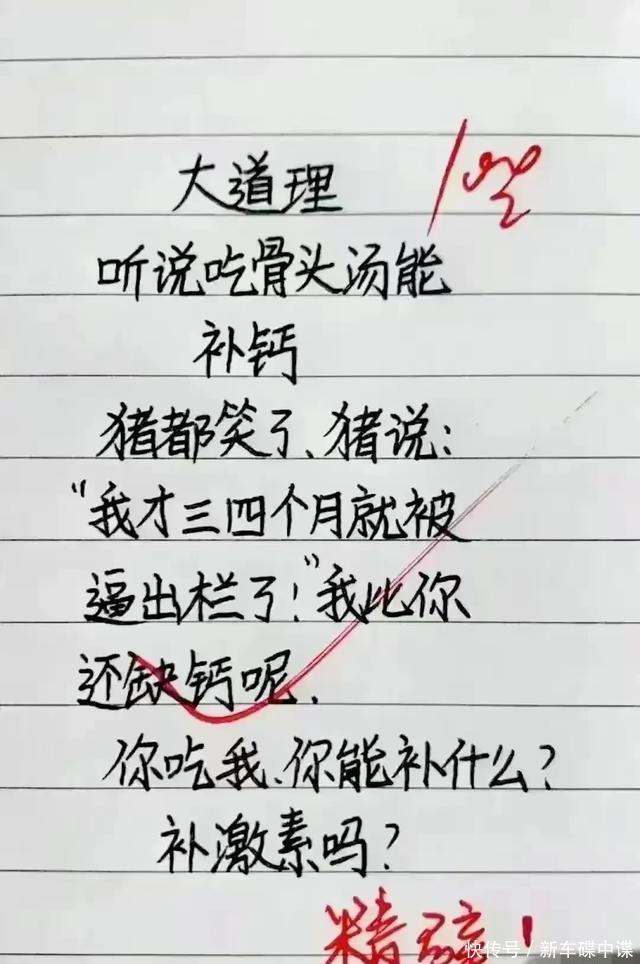 大道理
听说吃骨头汤能
补钙
猪都笑了、猪说:
"我才三四个月就被
逼出栏了!"我比你
还缺钙呢、
你吃我、你能补什么?
补激素吗?
精辟!
快传号/新车碟中谍